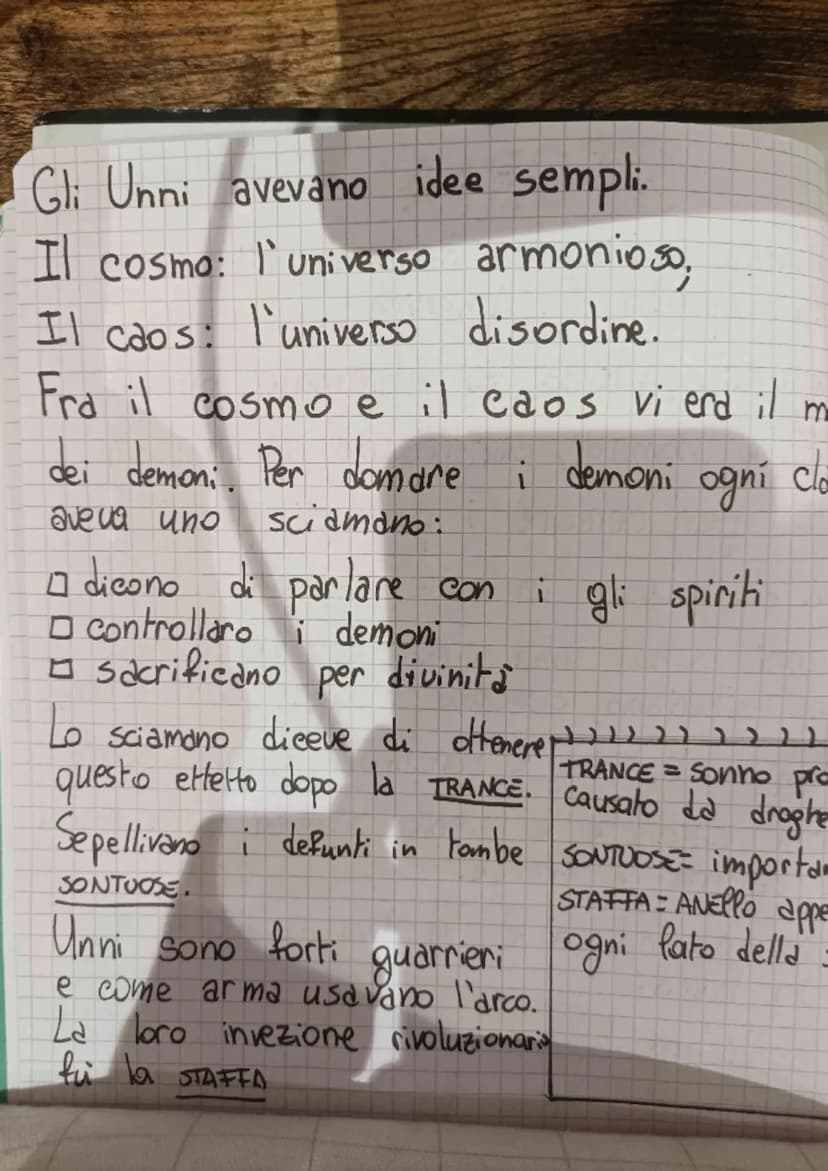 Gli Unni avevano idee sempli.
Il cosmo: l'universo armonioso;
Il caos: l'universo disordine.
Fra il cosmo e il caos vi era il m
dei demoni. Per domare i demoni ogni cla
aveva uno sciamano:
□ dicono di parlare con i gli spiriti
□ controllaro i demoni
□ sacrificano per divinità
Lo sciamano diceve di ottenere
questo effetto dopo la TRANCE.
Sepellivano i defunti in tombe
SONTUOSE.
Unni sono forti guarrieri
e come arma usavano l'arco.
La loro invezione rivoluzionaria
fù la STAFFA
TRANCE = sonno pro
causato da droghe
SONTUOSE = importan
STAFFA = ANEllo appe
ogni lato della s